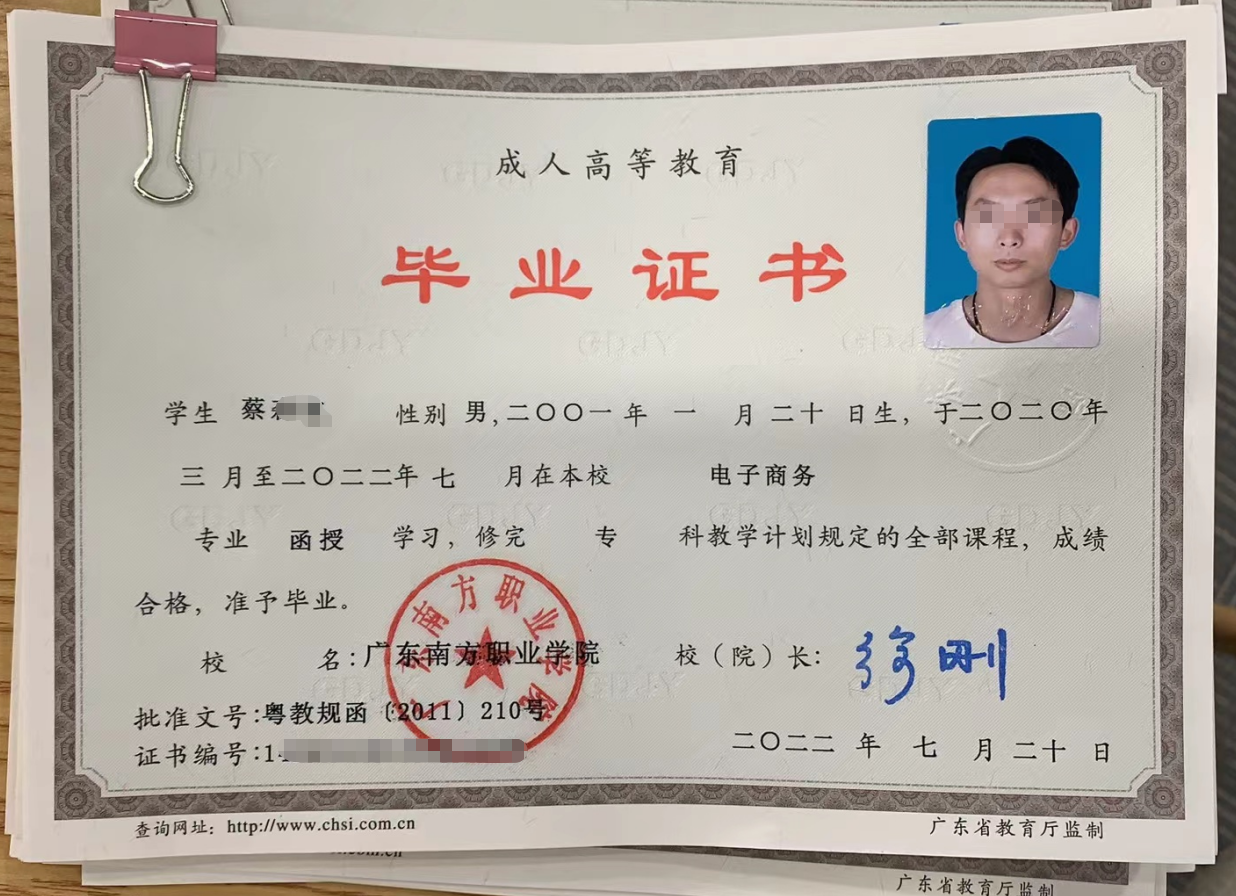 成人高等教育
毕业证书
学生 蔡 性别 男,二〇〇一年 一 月二十 日生，于二〇二〇年
三 月至二〇二二年 七 月在本校 电子商务
专业 函授 学习，修完 专 科教学计划规定的全部课程，成绩
合格，准予毕业。
广东南方职业学院
校 名:广东南方职业学院 校（院）长: 徐刚
批准文号:粤教规函〔2011〕210号
证书编号:1
二〇二二 年 七 月 二十 日
查询网址: http://www.chsi.com.cn 广东省教育厅监制
广东省教育厅监制